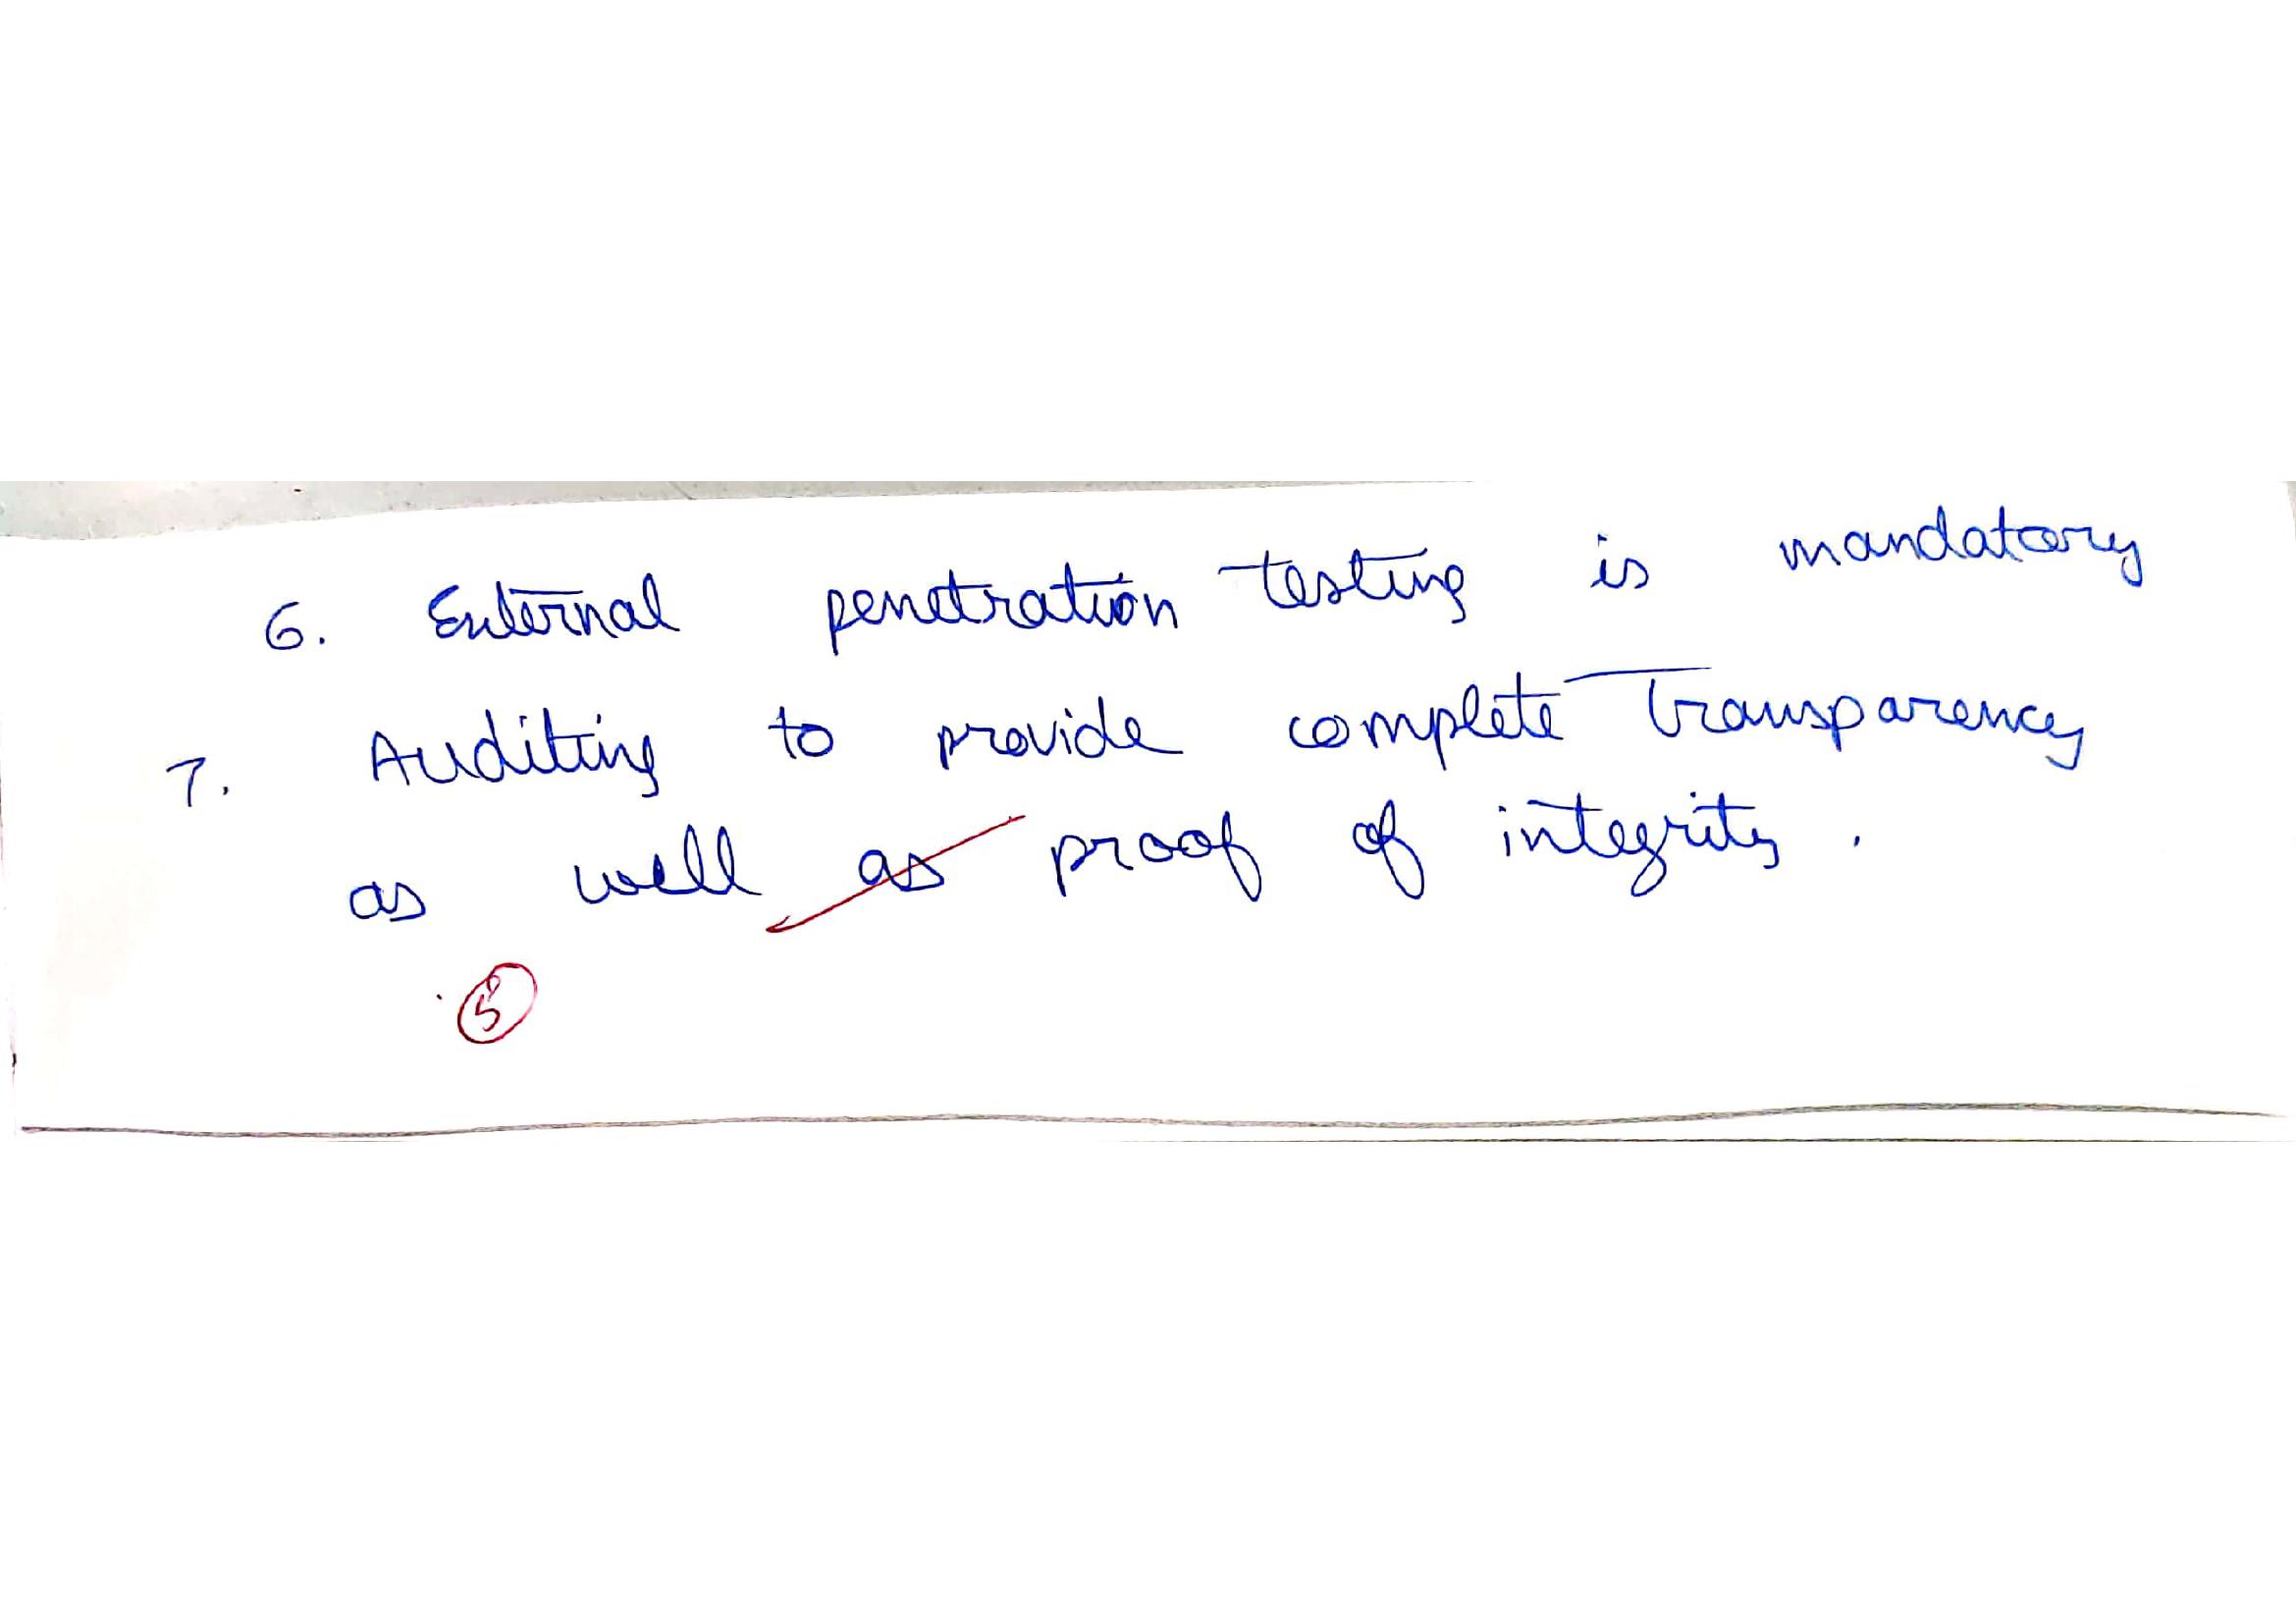 6. External penetration testing is mandatory
7. Auditing to provide complete transparency
as well as proof of integrity.
5